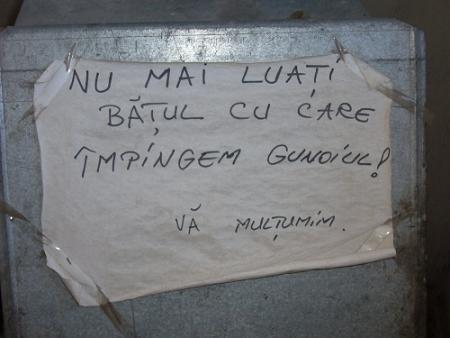 NU MAI LUAȚI
BĂȚUL CU CARE
ÎMPINGEM GUNOIUL!
VĂ MULȚUMIM.